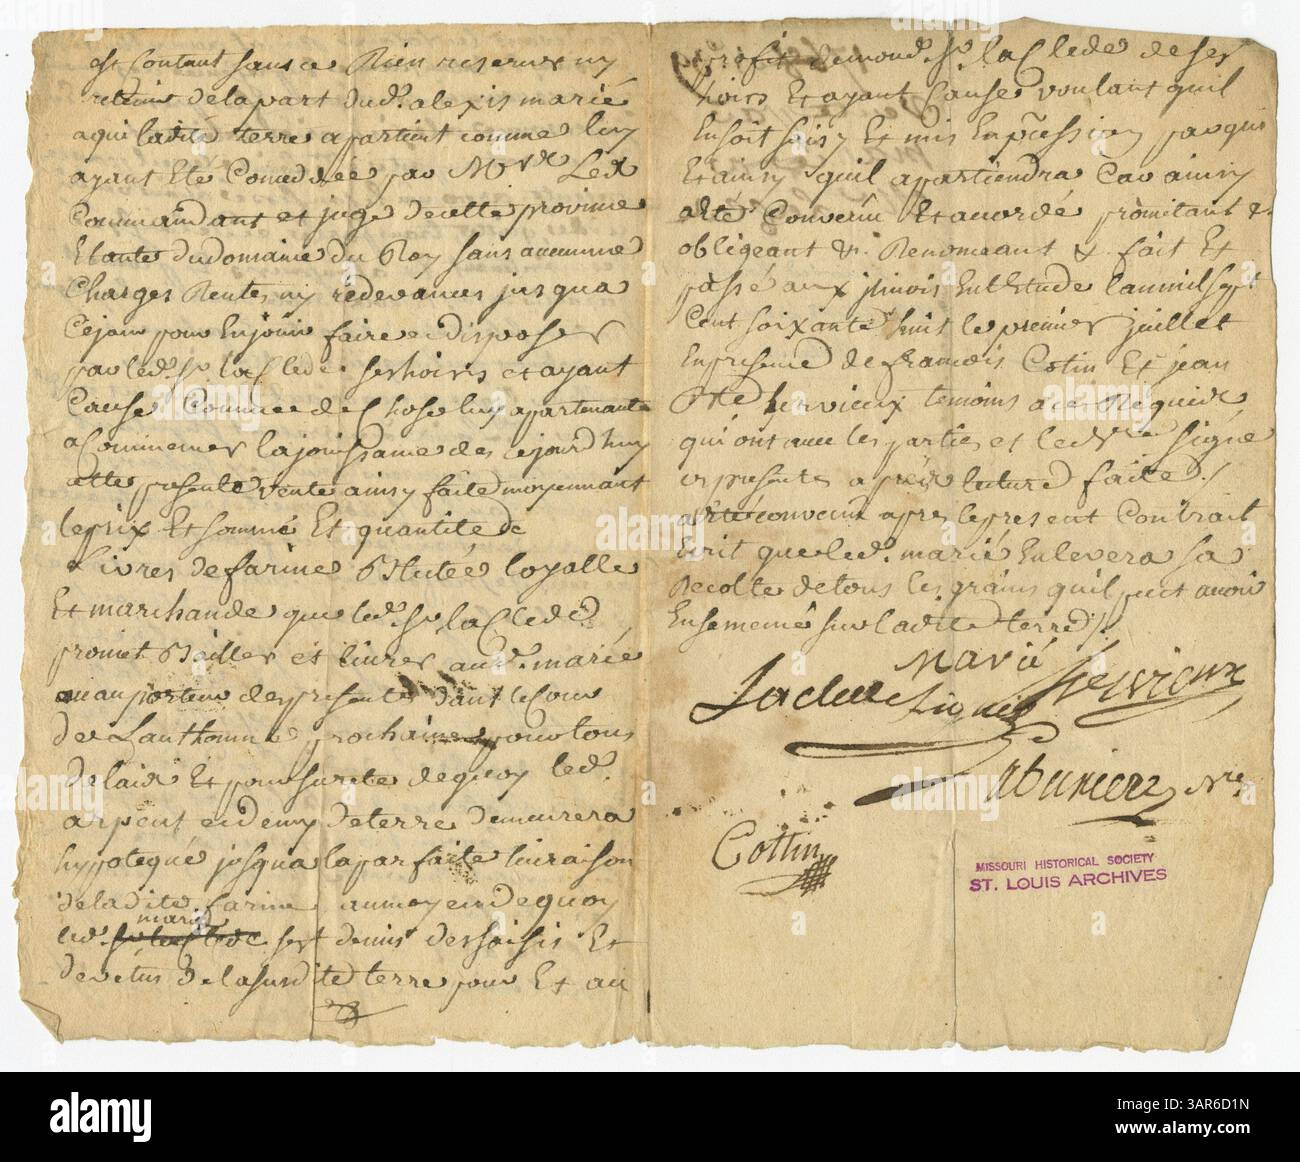 est Contant sans ce Rien reserver ny
retenir de la part dud. alexis marié
a qui ladité terre apartient comme luy
ayant Eté Concedéé par M
Commandant et juge de cette province
Etante du domaine du Roy sans aucunne
Charges Rentes ny redevances jusqua
Cejour pour En jouir faire et disposer
par led. Sr. laClede ses hoirs et ayant
Cause Comme de Chose luy apartenante
a Commencer la jouissance des cejourd huy
atte presente vente ainsy faite moyennant
le prix Et sommé Et quantité de
Livres de farine loyalle
Et marchande que led. Sr. laClede
promet Bailler et livrer aud. marié
ou au porteur des presentes dans le Cour
de Lauthonne prochaine pour tous
delaix Et pour sureté de quoy led.
arpent et demy de terre demeurera
hypotequé jusqua la parfaite livraison
de ladite farine au moyen de quoy
marié
led. Sr. laClede sest demis dessaisis Et
devetus de la susdite terre pour Et au
profit de mond. Sr. laClede de ses
hoirs Et ayant Cause voulant quil
En soit saisy Et mis En pcession par qui
Et ainsy quil apartiendra Car ainsy
a Eté Convenu Et acordé promitant &
obligeant &. Renonceant & fait Et
passé aux jlinois En lEtude lan mil sept
Cent soixante huit le premier juillet
En presence de francois Cotin Et jean
Bte. hervieux temoins a ce Requis
qui ont avec les parties et led. Nre signé
ces presentes apres lecture faite /
a eté convenu apres le present Contrait
Ecrit que led. marié Enlevera sa
Recolte de tous les grains quil peut avoir
Ensemencé sur ladite terre /.
Marié
Laclede Liguest hervieux
Labuxiere Nre
Cottin
MISSOURI HISTORICAL SOCIETY
ST. LOUIS ARCHIVES
alamy
Image ID: 3AR6D1N
www.alamy.com